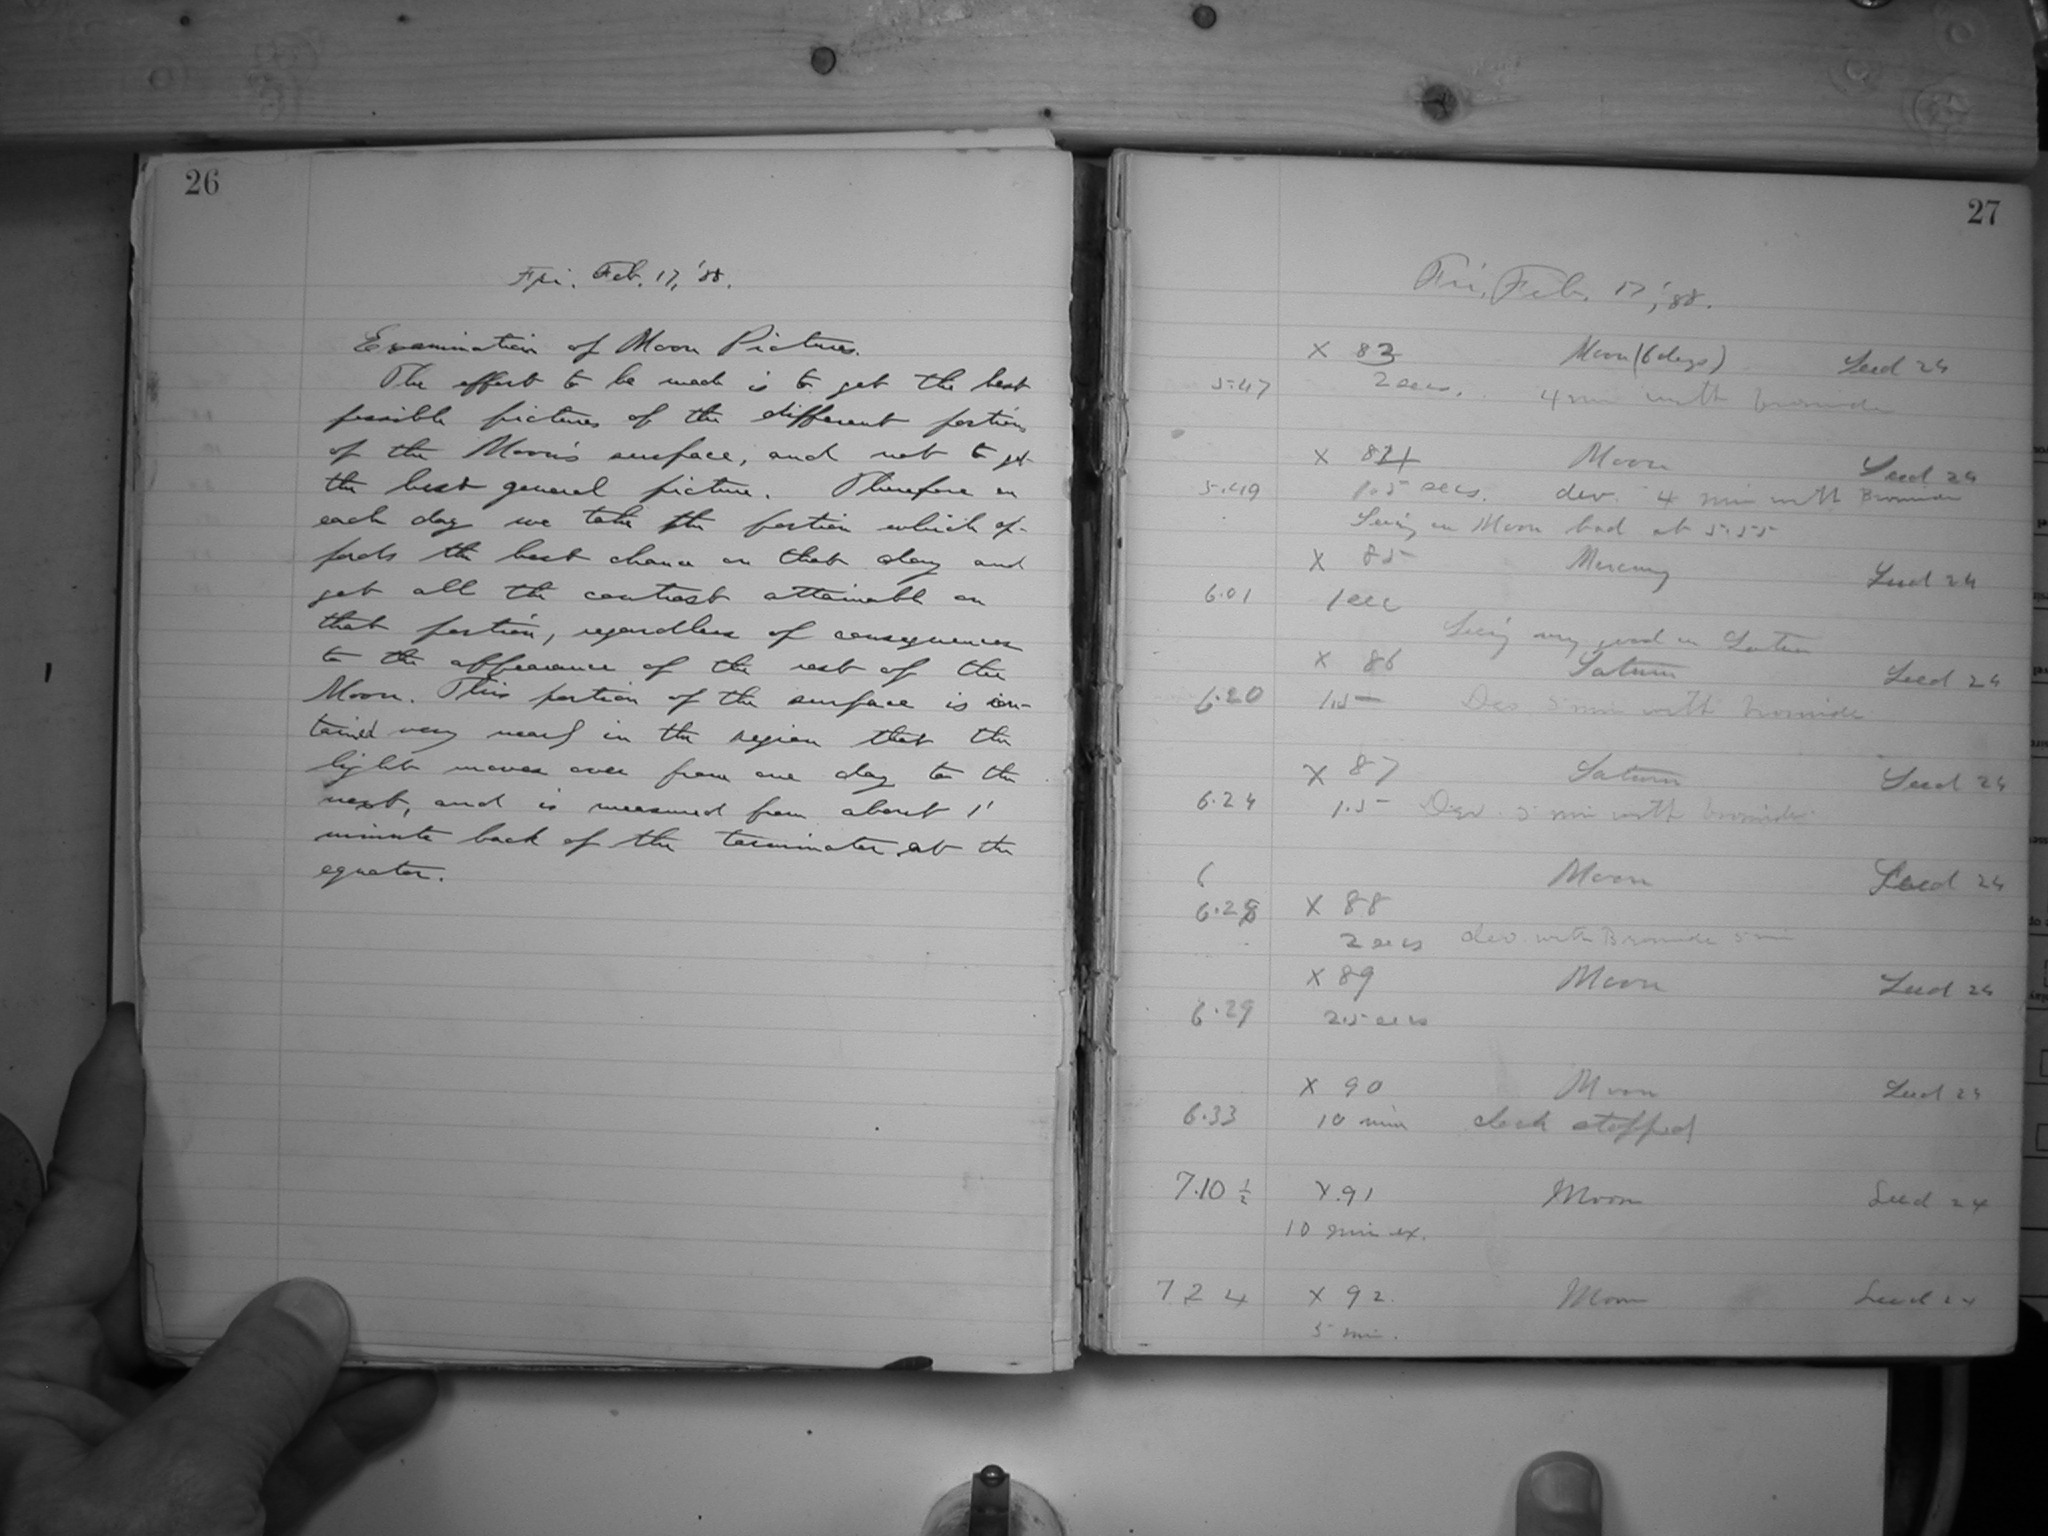 26
Fri. Feb. 17, '88.
Examination of Moon Pictures.
The effort to be made is to get the best
possible pictures of the different portions
of the Moon's surface, and not to get
the best general picture. Therefore on
each day we take the portion which af-
fords the best chance on that day and
get all the contrast attainable on
that portion, regardless of consequences
to the appearance of the rest of the
Moon. This portion of the surface is con-
tained very nearly in the region that the
light moves over from one day to the
next, and is measured from about 1'
minute back of the terminator at the
equator.
27
Fri. Feb. 17, '88.
X 83 Moon (6 days) Seed 24
5.47 2 secs. 4 min with bromide
X 84 Moon Seed 24
5.49 1.5 secs. dev. 4 min with Bromide
Seeing on Moon bad at 5.55
X 85 Mercury Seed 24
6.01 1 sec
Seeing very good on Saturn
X 86 Saturn Seed 24
6.20 1.5 Dev. 5 min with bromide
X 87 Saturn Seed 24
6.24 1.5 Dev. 5 min with bromide
6 Moon Seed 24
6.28 X 88
2 secs dev. with Bromide 5 min
X 89 Moon Seed 24
6.29 2.5 secs
X 90 Moon Seed 24
6.33 10 min clock stopped
7.10 ½ X.91 Moon Seed 24
10 min ex.
7 24 X 92. Moon Seed 24
5 min.